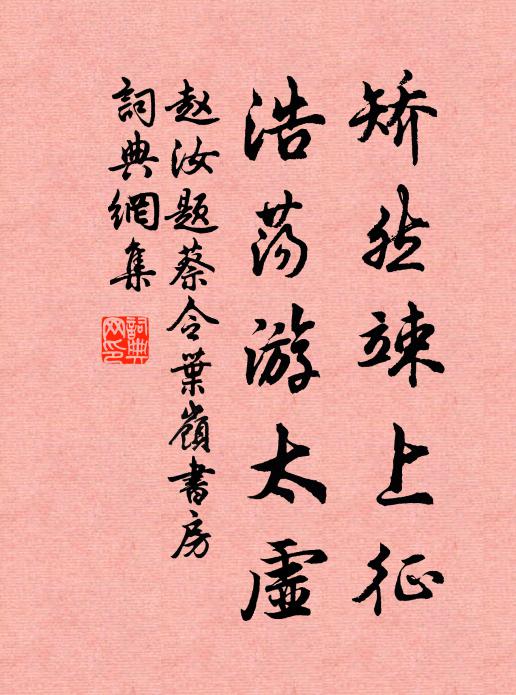 矫然竦上征
浩荡游太虚
赵汝题蔡令叶嶺书房
词典网集
词典网印